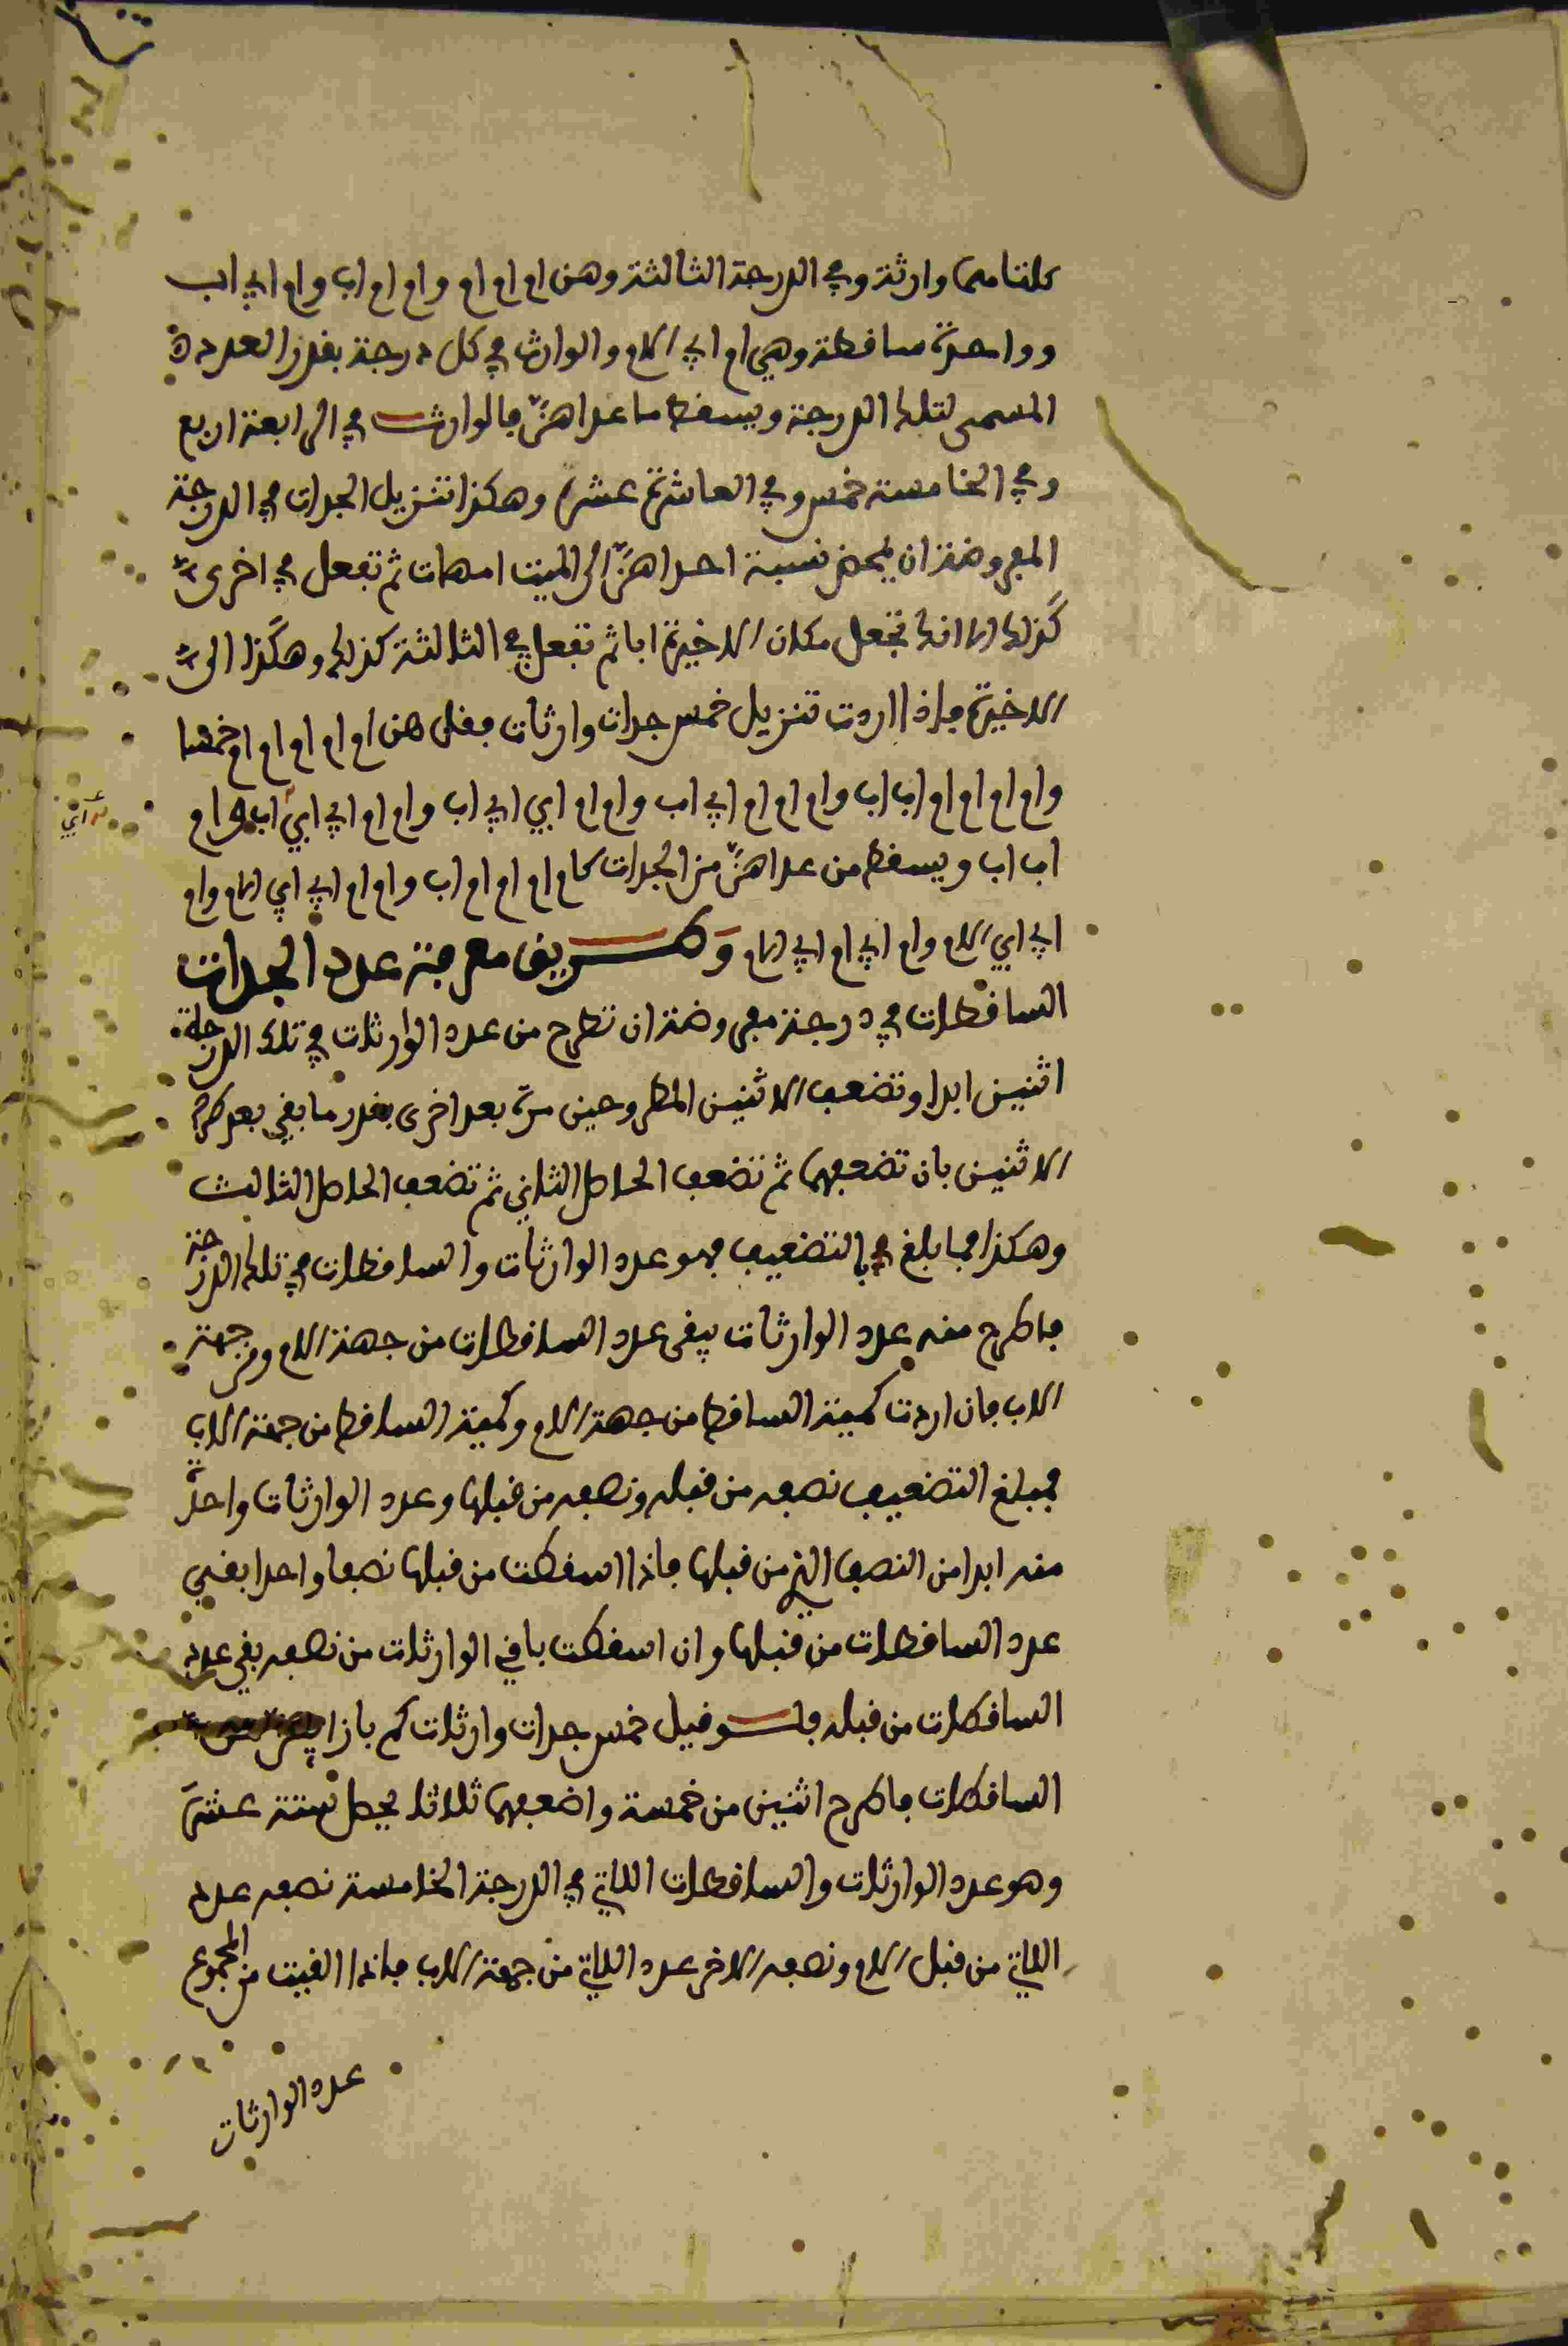 كلتاهما وارثة وفي الدرجة الثالثة وهن ام ام ام وام ام اب وام ابي اب
وواحدة ساقطة وهي ام ابي الام والوارث في كل درجة بقدر العدد
المسمى لتلك الدرجة ويسقط ما عداهن فالوارث في الرابعة اربع
وفي الخامسة خمس وفي العاشرة عشر وهكذا تنزيل الجدات في الدرجة
المفروضة ان تمحض نسبة احداهن الى الميت امهات ثم تفعل في اخرى
كذلك الا انك تجعل مكان الاخيرة ابا ثم تفعل في الثالثة كذلك وهكذا الى
الاخيرة فاذا اردت تنزيل خمس جدات وارثات فقل هن ام ام ام ام ام خمسا
وام ام ام ام اب اب وام ام ام ابي اب وام ام ابي ابي اب وام ام ابي ابي اب وام
اب اب ويسقط من عداهن من الجدات كام ام ام ام اب وام ام ابي ابي الام وام
ابي ابي الام وام ابي ام ابي الام وطريق معرفة عدد الجدات
الساقطات في درجة مفروضة ان تطرح من عدد الوارثات في تلك الدرجة
اثنين ابدا وتضعف الاثنين المطروحين مرة بعد اخرى بقدر ما بقي بعد طرح
الاثنين بان تضعفهما ثم تضعف الحاصل الثاني ثم تضعف الحاصل الثالث
وهكذا فما بلغ بالتضعيف فهو عدد الوارثات والساقطات في تلك الدرجة
فاطرح منه عدد الوارثات يبقى عدد الساقطات من جهة الام ومن جهة
الاب فان اردت كمية الساقط من جهة الام وكمية الساقط من جهة الاب
فمبلغ التضعيف نصفه من قبله ونصفه من قبلها وعدد الوارثات واحدة
منه ابدا من النصف الذي من قبلها فاذا اسقطت من قبلها نصفا واحدا بقي
عدد الساقطات من قبلها وان اسقطت باقي الوارثات من نصفه بقي عدد
الساقطات من قبله فلو قيل خمس جدات وارثات كم بازا
الساقطات فاطرح اثنين من خمسة واضعفهما ثلاثا يحصل ستة عشر
وهو عدد الوارثات والساقطات اللاتي في الدرجة الخامسة نصفه عدد
اللاتي من قبل الام ونصفه الاخر عدد اللاتي من جهة الاب فاذا القيت من المجموع
عدد الوارثات